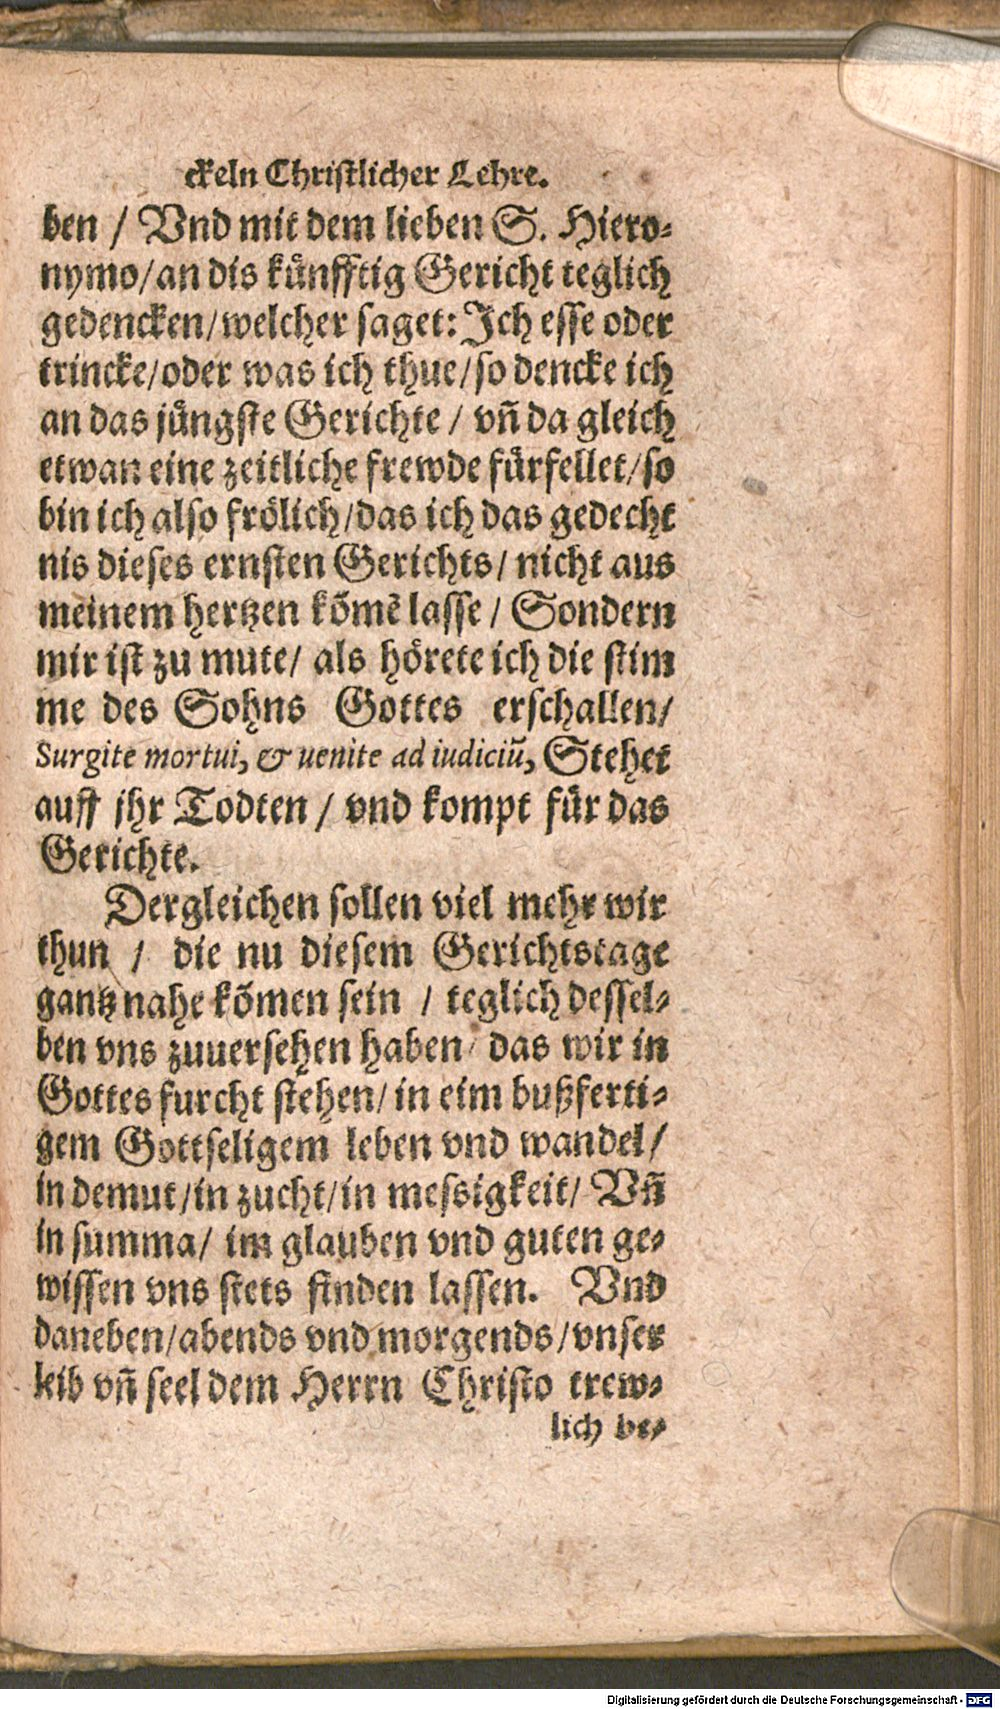 ckeln Christlicher Lehre.
ben / Vnd mit dem lieben S. Hiero⸗
nymo/an dis künfftig Gericht teglich
gedencken/welcher saget: Ich esse oder
trincke/oder was ich thue/so dencke ich
an das jüngste Gerichte / vñ da gleich
etwan eine zeitliche frewde fürfellet/so
bin ich also frölich/das ich das gedecht
nis dieses ernsten Gerichts/ nicht aus
meinem hertzen kõmẽ lasse / Sondern
mir ist zu mute/ als hörete ich die stim
me des Sohns Gottes erschallen/
Surgite mortui, & uenite ad iudiciũ, Stehet
auff jhr Todten / vnd kompt für das
Gerichte.
Dergleichen sollen viel mehr wir
thun / die nu diesem Gerichtstage
gantz nahe kõmen sein / teglich dessel⸗
ben vns zuuersehen haben/ das wir in
Gottes furcht stehen/ in eim bußferti⸗
gem Gottseligem leben vnd wandel/
in demut/in zucht/in messigkeit/ Vñ
in summa/ im glauben vnd guten ge⸗
wissen vns stets finden lassen. Vnd
daneben/abends vnd morgends/vnser
leib vñ seel dem Herrn Christo trew⸗
lich be⸗
Digitalisierung gefördert durch die Deutsche Forschungsgemeinschaft - DFG